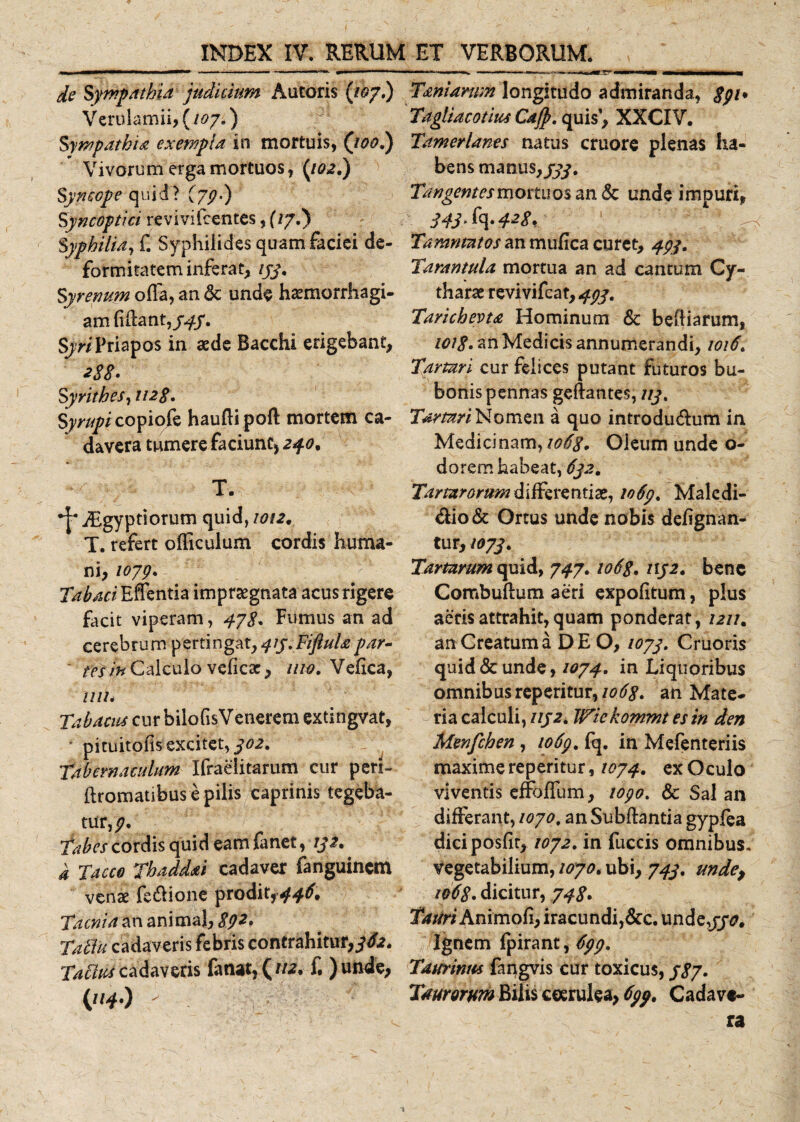 INDEX IV. RERUM ET VERBORUM.
de Sympathia judicium Autoris (107.)
Verulamii, (107.)
Sympathiæ exempla in mortuis, (100.)
Vivorum erga mortuos, (102.)
Syncope quid? (79.)
Syncoptici reviviſcentes, (17.)
Syphilia, ſ. Syphilides quam faciei de-
formitatem inferat, 153.
Syrenum oſſa, an & unde hæmorrhagi-
am ſiſtant, 545.
Syri Priapos in æde Bacchi erigebant,
288.
Syrithes, 1128.
Syrupi copioſe hauſti poſt mortem ca-
davera tumere faciunt, 240.
T.
T Ægyptiorum quid, 1012.
T. refert oſſiculum cordis huma-
ni, 1079.
Tabaci Eſſentia imprægnata acus rigere
facit viperam, 478. Fumus an ad
cerebrum pertingat, 415. Fiſtulæ par-
tes in Calculo veſicæ, 1110. Veſica,
1111.
Tabacus cur bilosis Venerem extingvat,
pituitoſis excitet, 302.
Tabernaculum Iſraëlitarum cur peri-
ſtromatibus è pilis caprinis tegeba-
tur, 9.
Tabes cordis quid eam ſanet, 132.
à Tacco Thaddæi cadaver ſanguinem
venæ ſectione prodit, 446.
Tacnia an animal, 892.
Tactu cadaveris febris contrahitur, 362.
Tactus cadaveris ſanat, (112. ſ.) unde,
(114.)
Tæniarum longitudo admiranda, 891.
Tagliacotius Caſp. quis, XXCIV.
Tamerlanes natus cruore plenas ha-
bens manus, 533.
Tangentes mortuos an & unde impuri,
343. ſq. 428.
Tarantatos an muſica curet, 493.
Tarantula mortua an ad cantum Cy-
tharæ reviviſcat, 493.
Tarichevtæ Hominum & beſtiarum,
1018. an Medicis annumerandi, 1016.
Tartari cur felices putant futuros bu-
bonis pennas geſtantes, 113.
Tartari Nomen à quo introductum in
Medicinam, 1068. Oleum unde o-
dorem habeat, 632.
Tartarorum differentiæ, 1069. Maledi-
ctio & Ortus unde nobis deſignan-
tur, 1073.
Tartarum quid, 747. 1068. 1152. bene
Combuſtum aëri expoſitum, plus
aëris attrahit, quam ponderat, 1211.
an Creatum à DEO, 1073. Cruoris
quid & unde, 1074. in Liquoribus
omnibus reperitur, 1068. an Mate-
ria calculi, 1152. Wie kommt es in den
Menſchen, 1069. ſq. in Meſenteriis
maxime reperitur, 1074. ex Oculo
viventis effoſſum, 1090. & Sal an
differant, 1070. an Subſtantia gypſea
dici posſit, 1072. in ſuccis omnibus
vegetabilium, 1070. ubi, 743. unde,
1068. dicitur, 748.
Tauri Animoſi, iracundi, &c. unde, 550.
Ignem ſpirant, 699.
Taurinus ſangvis cur toxicus, 587.
Taurorum Bilis cœrulea, 699. Cadave-
ra